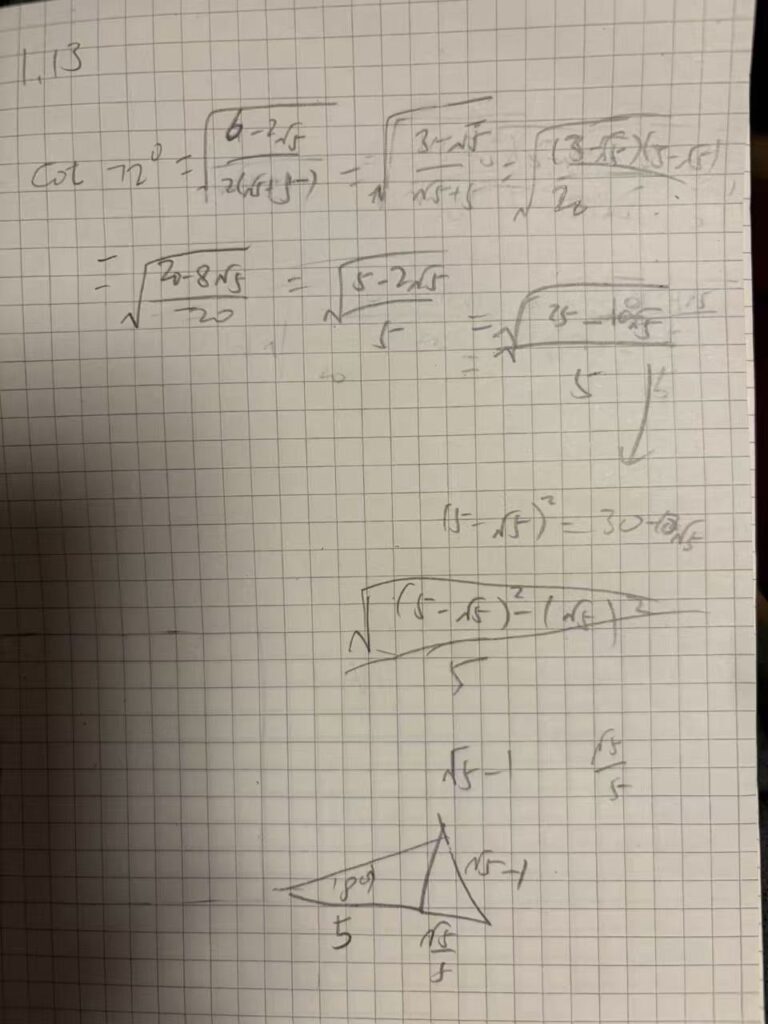 1.13
cot 72° = √((6-2√5)/(2(√5+5))) = √((3-√5)/(√5+5)) = √(((3-√5)(5-√5))/20)
= √((20-8√5)/20) = √((5-2√5)/5) = √(25-10√5)/5
(5-√5)² = 30-10√5
√((5-√5)²-(√5)²)/5
√5-1 √5/5
18° √5-1
5 √5/5